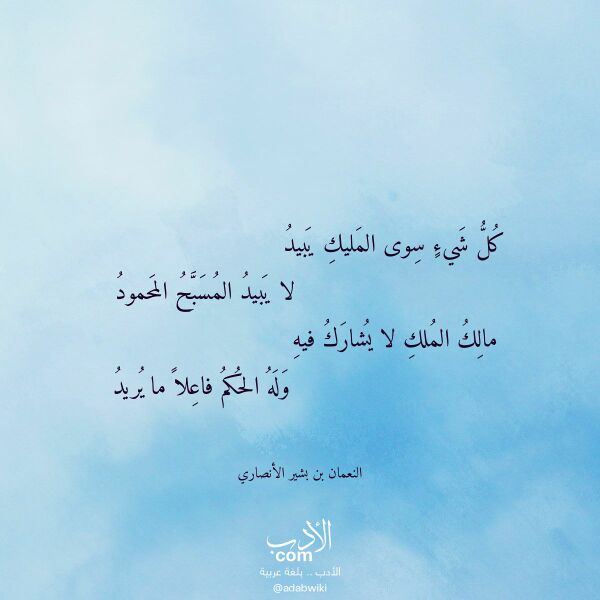 كُلُّ شَيءٍ سِوى المَليكِ يَبيدُ
لا يَبيدُ المُسَبَّحُ المَحمودُ
مالِكُ المُلكِ لا يُشارَكُ فيهِ
وَلَهُ الحُكمُ فاعِلاً ما يُريدُ
النعمان بن بشير الأنصاري
الأدب
com
الأدب .. بلغة عربية
@adabwiki